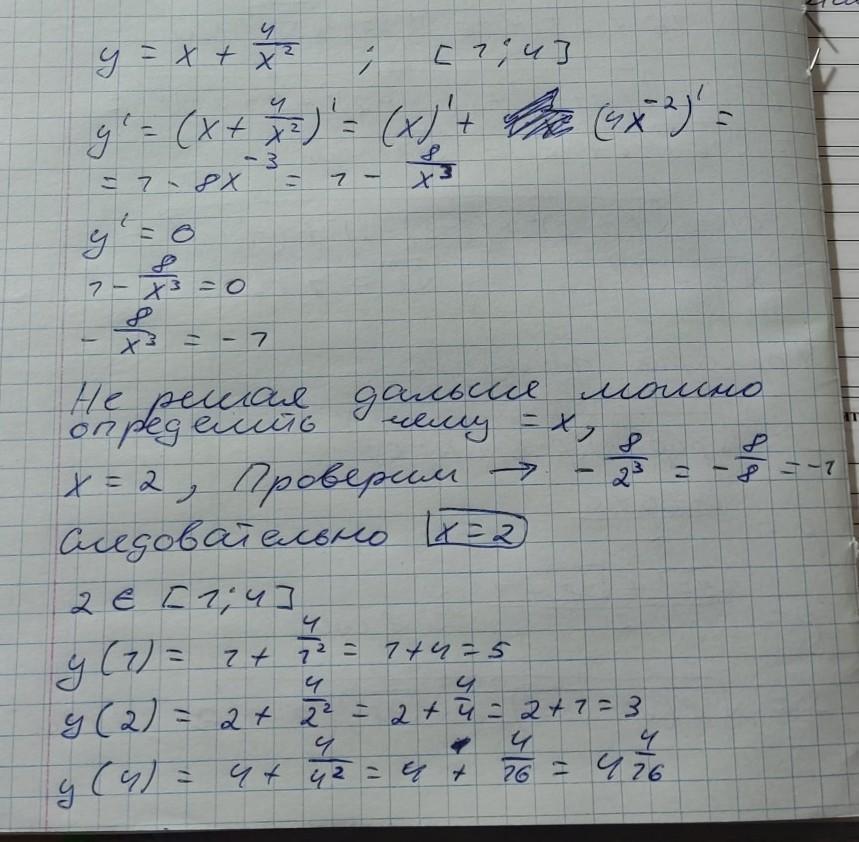 y = x + 4/x² ; [1; 4]
y' = (x + 4/x²)' = (x)' + (4x⁻²)' =
= 1 - 8x⁻³ = 1 - 8/x³
y' = 0
1 - 8/x³ = 0
- 8/x³ = -1
Не решая дальше можно
определить чему = x,
x = 2, Проверим → - 8/2³ = - 8/8 = -1
следовательно x = 2
2 ∈ [1; 4]
y(1) = 1 + 4/1² = 1 + 4 = 5
y(2) = 2 + 4/2² = 2 + 4/4 = 2 + 1 = 3
y(4) = 4 + 4/4² = 4 + 4/16 = 4 4/16